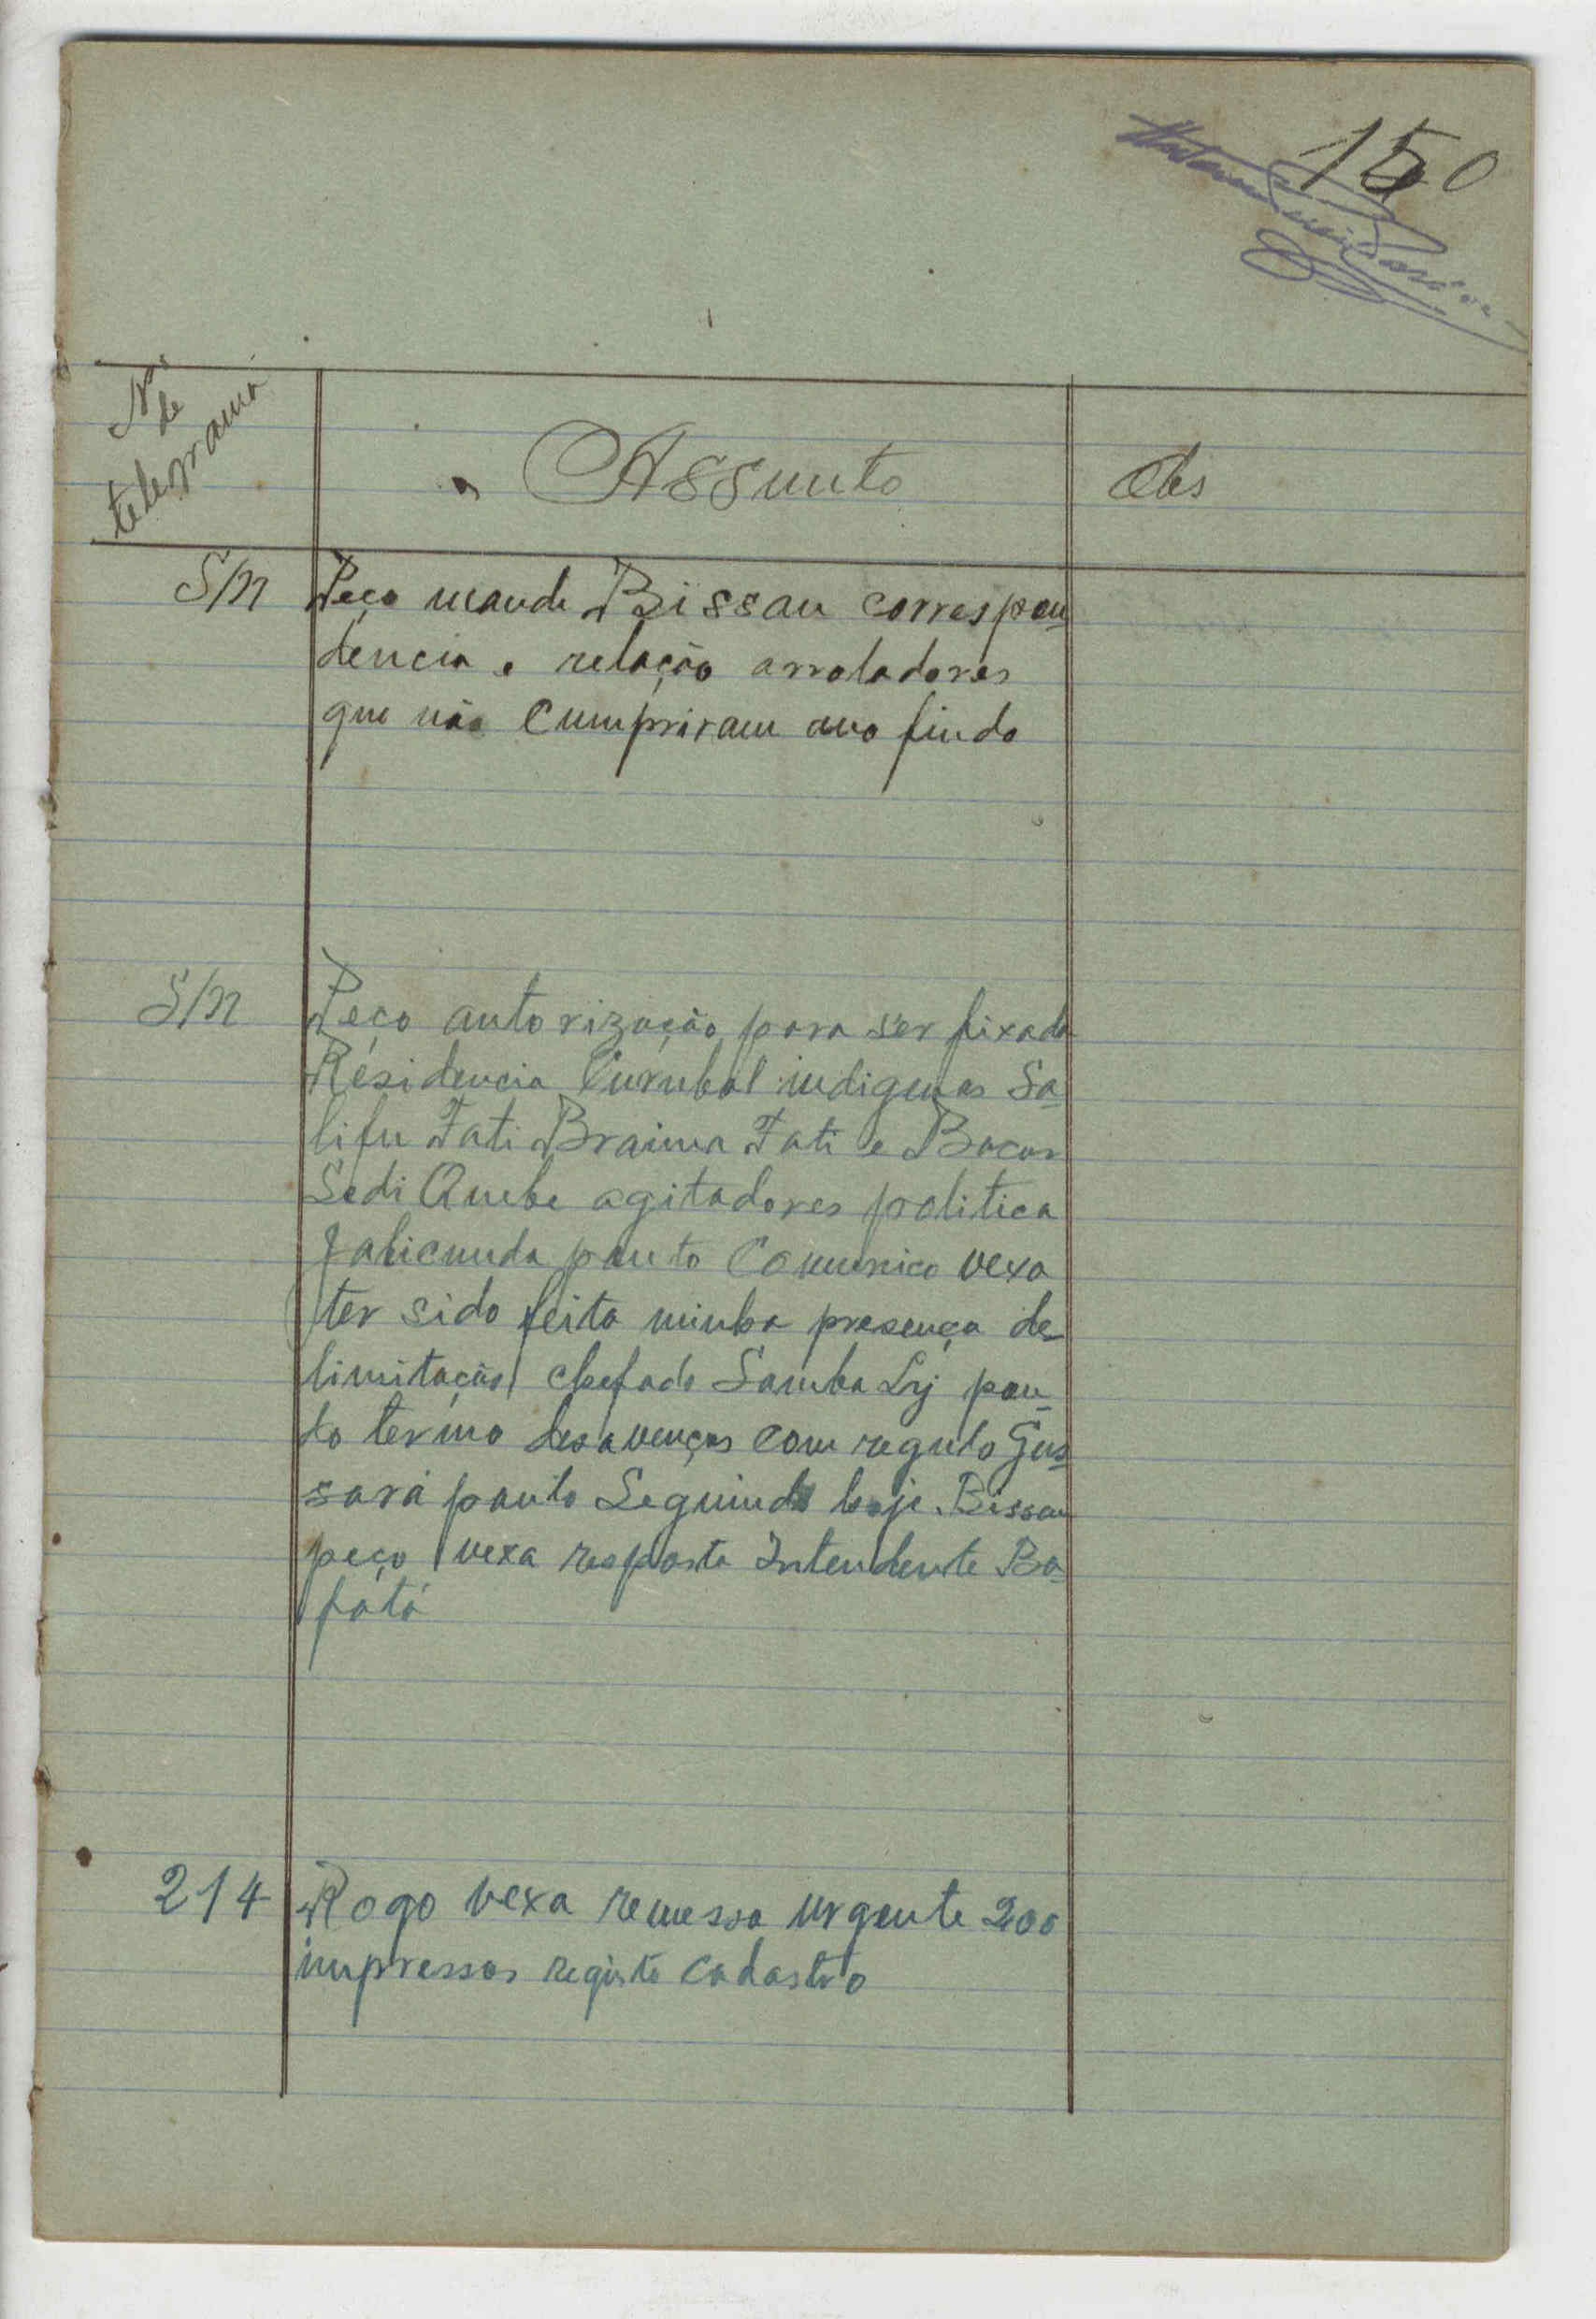 150
Nos
de
telegrama
Assunto
Obs
S/N
Peço mande Bissau correspon-
dencia e relação arroladores
que não cumpriram ano findo
S/N
Peço autorização para ser fixada
Residencia Curubal indigenas Sa-
lifu Fati Braima Fati e Bacar
Sedi agitadores politica
ponto Comunico vexa
ter sido feita minha presença de-
limitação chefado Samba Ly pon-
do termo desavenças com regulo Gus-
sará ponto Seguindo hoje Bissau
peço vexa resposta Intendente Ba-
fatá
214
Rogo vexa remessa urgente 200
impressos registo cadastro